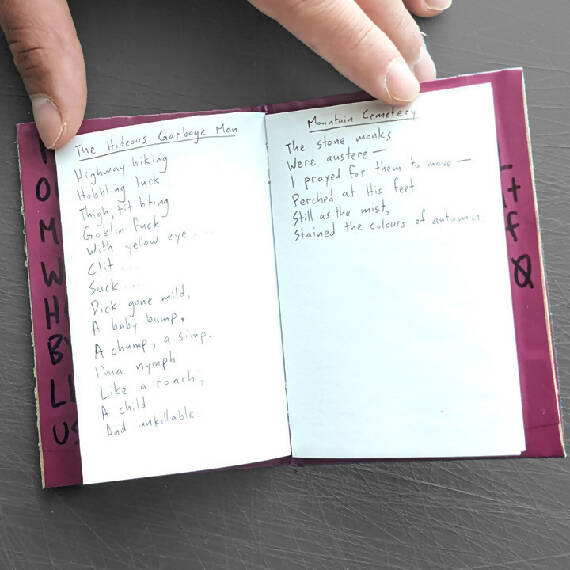 The Hideous Garbage Man
Highway hiking
Hobbling luck
Thigh, tit bting
Goblin fuck
With yellow eye....
Clit...
Suck...
Dick gone mild,
A baby bump,
A chump, a simp.
I'ma nymph
Like a roach,
A child
And unkillable.
Mountain Cemetery
The stone monks
Were austere —
I prayed for them to move —
Perched at His feet
Still as the mist,
Stained the colours of autumn.
O
M
W
H
B
L
US
t
f